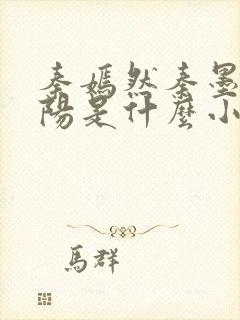 秦嫣然秦墨
陽是什麼小
馬群